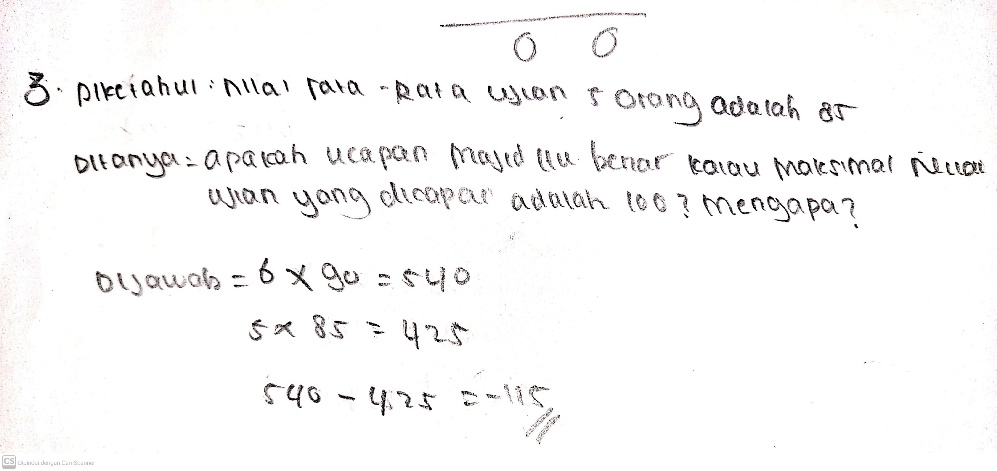 0 0
3. Diketahui : Nilai rata - Rata ujian 5 Orang adalah 85
Ditanya = apakah ucapan Majid itu benar kalau Maksimal
ujian yang dicapai adalah 100? Mengapa?
Dijawab = 6 x 90 = 540
5 x 85 = 425
540 - 425 = -115
CS Dipindai dengan CamScanner